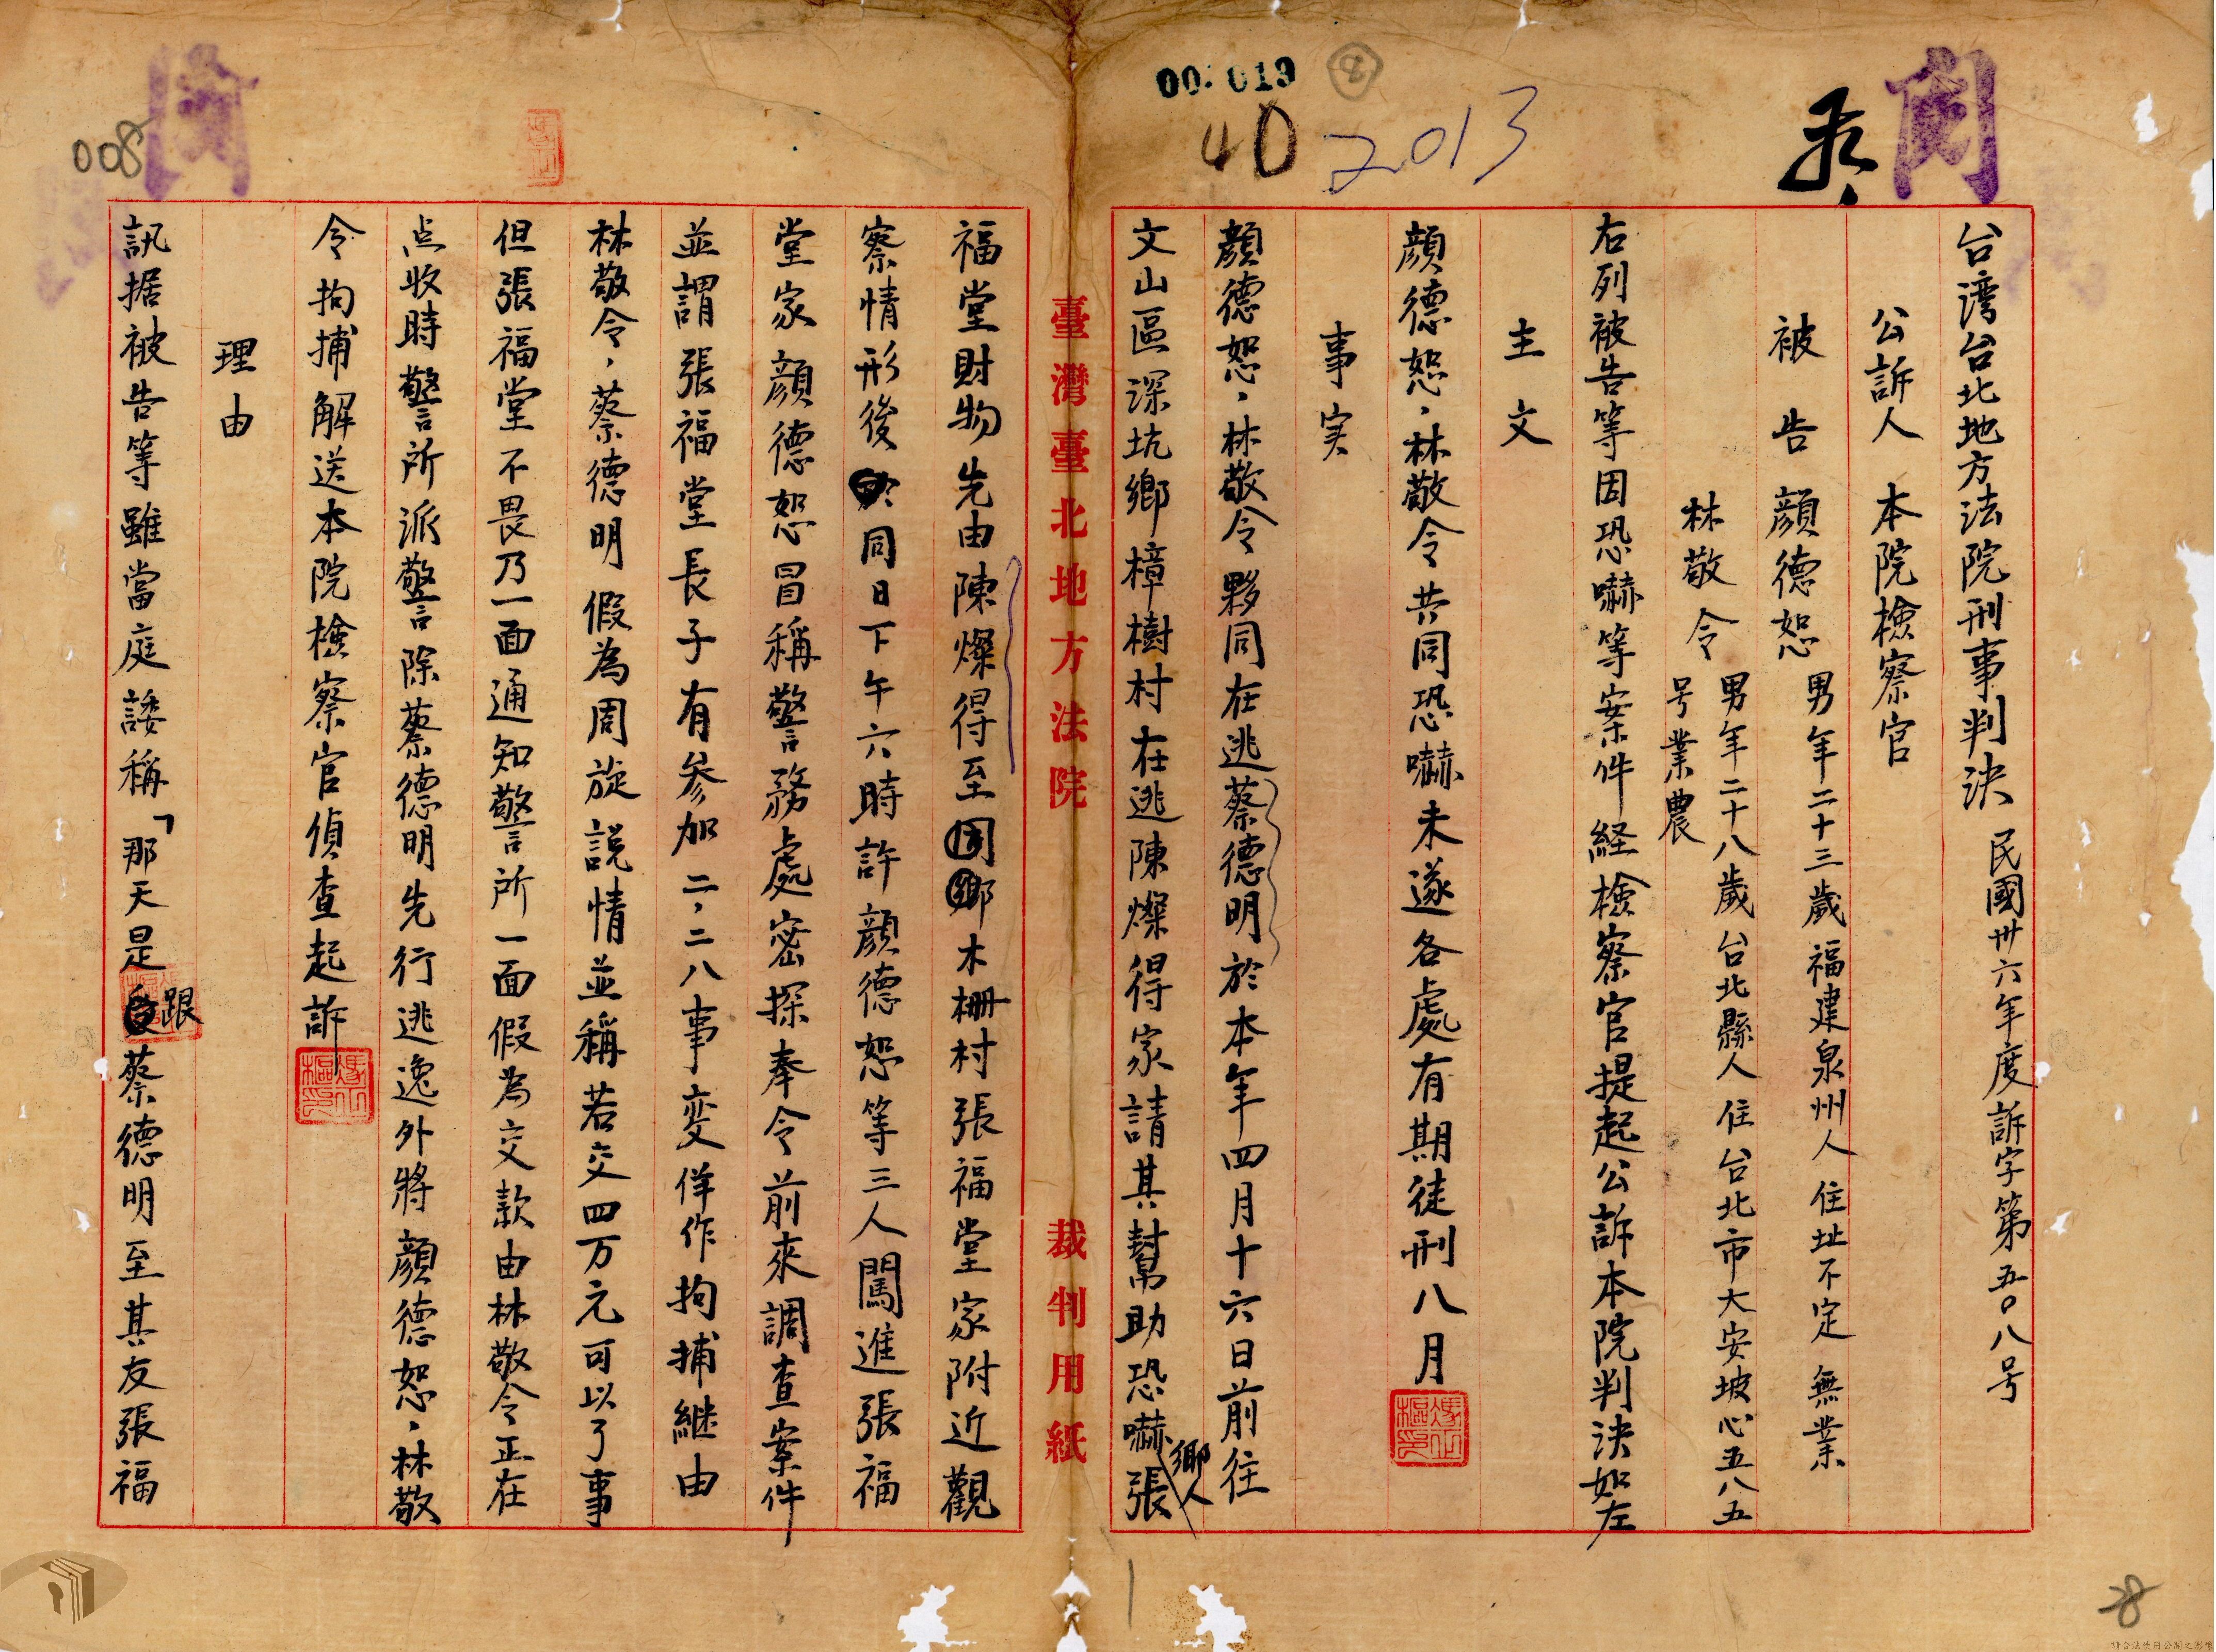 00:019
8
40
2013
台湾台北地方法院刑事判決 民國卅六年度訴字第五〇八号
公訴人 本院檢察官
被告 顔德恕 男年二十三歲福建泉州人住址不定無業
林敬令 男年二十八歲台北縣人住台北市大安坡心五八五
号業農
右列被告等因恐嚇等案件経檢察官提起公訴本院判決如左
主文
顔德恕、林敬令共同恐嚇未遂各處有期徒刑八月
事実
顔德恕、林敬令夥同在逃蔡德明於本年四月十六日前往
文山區深坑鄉樟樹村在逃陳燦得家請其幫助恐嚇鄉人張
臺灣臺北地方法院 裁判用紙
福堂財物先由陳燦得至同鄉木柵村張福堂家附近觀
察情形後於同日下午六時許顔德恕等三人闖進張福
堂家顔德恕冒稱警務處密探奉令前來調查案件
並謂張福堂長子有參加二、二八事変佯作拘捕継由
林敬令、蔡德明假為周旋説情並稱若交四万元可以了事
但張福堂不畏乃一面通知警所一面假為交款由林敬令正在
点收時警所派警除蔡德明先行逃逸外將顔德恕、林敬
令拘捕解送本院檢察官偵查起訴
理由
訊据被告等雖當庭諉稱「那天是跟蔡德明至其友張福
008
28
請合法使用公開之影像